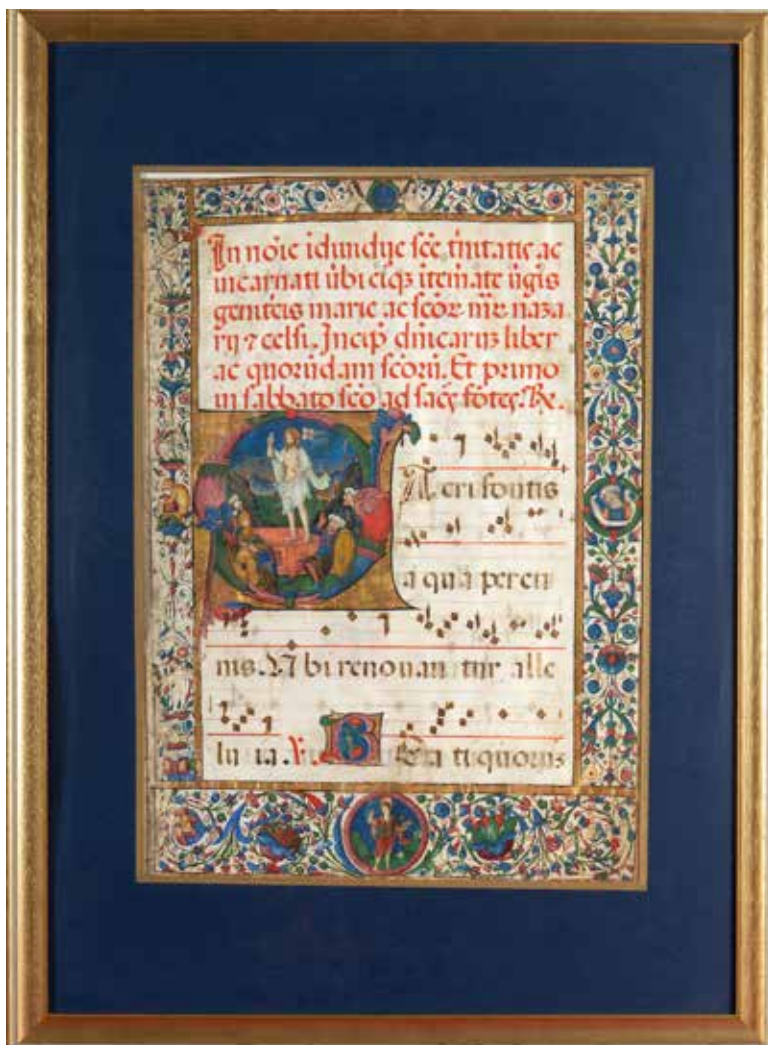 In noīe idiuidue sc̄e trinitatis ac
incarnati ūbi eiq̄ᷤ itemate ūgis
genitcis marie ac sc̄oꝝ mr̄ naza
rij ⁊ celsi. Incip̄ dn̄icariꝫ liber
ac quorūdam sc̄orū. Et primo
in sabbato sc̄o ad sac̄ fōteˢ. R̄.
Acri fontis
a quā peren
nis. Vbi renouan tur alle
lu ia. ℣. B Ea ti quorus